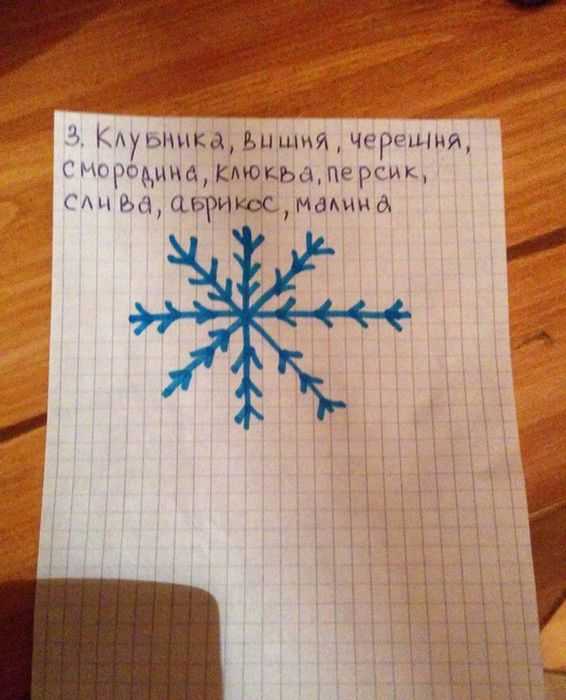 3. Клубника, вишня, черешня,
смородина, клюква, персик,
слива, абрикос, малина